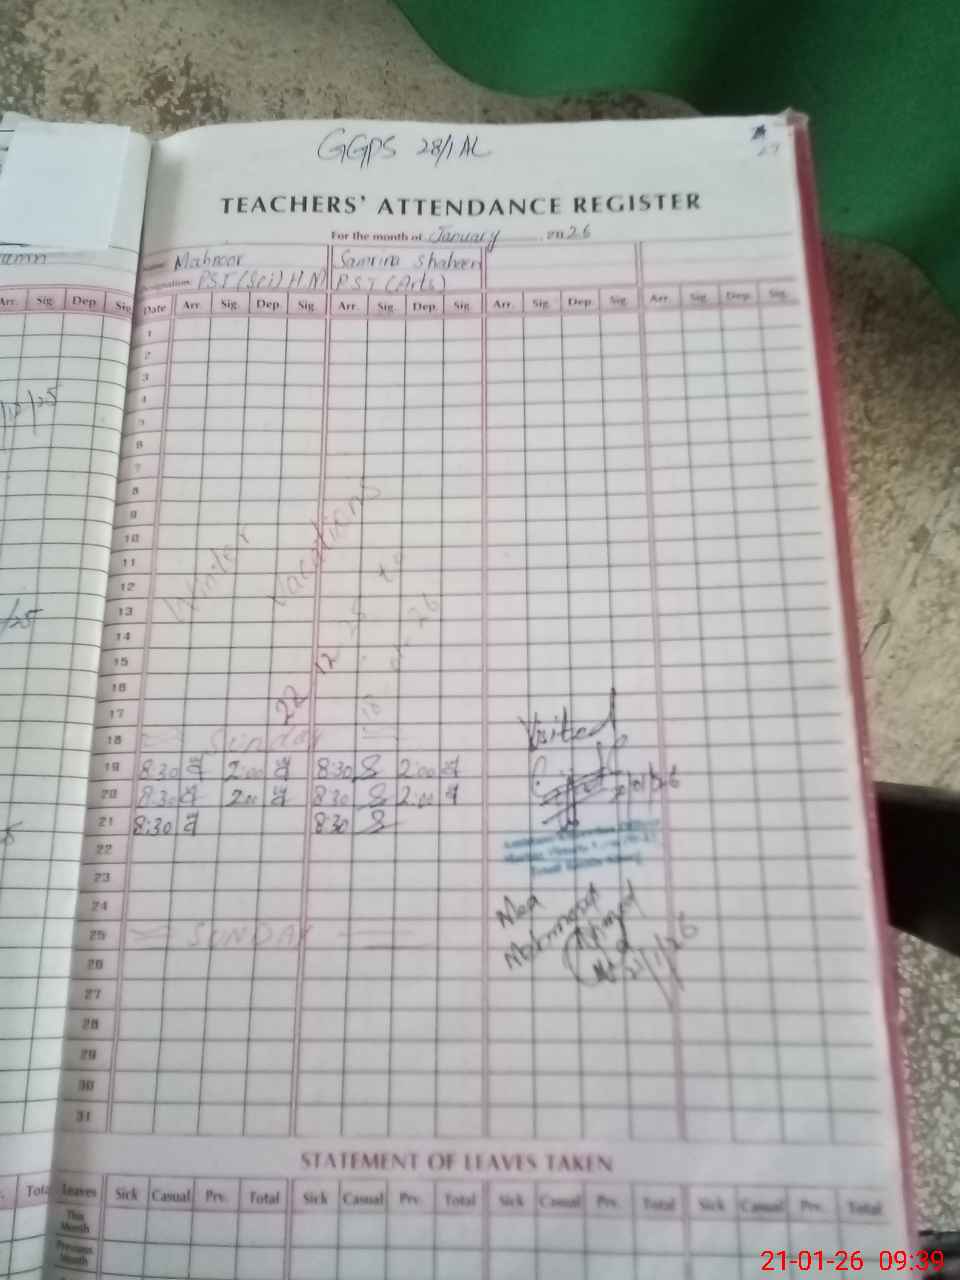 GGPS 28/1 AL
27
TEACHERS' ATTENDANCE REGISTER
For the month of January 2026
Name: Mahnoor Samina Shaheen
Designation: PST (Sci) H.M P.S.T (Arts)
Arr. Sig. Dep. Sig.
Date Arr. Sig. Dep. Sig. Arr. Sig. Dep. Sig. Arr. Sig. Dep. Sig. Arr. Sig. Dep. Sig.
1
2
3
4
/12/25
5
6
7
8
9
10
11
12
13
14
/25
15
16
17
Winter Vacations
22 12 25 to
18 01 26
18 = Sunday =
19 8:30 2:00 8:30 2:00
20 8:30 2:00 8:30 2:00
21 8:30 8:30
22
23
24
25 = SUNDAY =
26
27
28
29
30
31
Visited
/01/26
Mea
Ahmad
21/1/26
STATEMENT OF LEAVES TAKEN
Total Leaves Sick Casual Prv. Total Sick Casual Prv. Total Sick Casual Prv. Total Sick Casual Prv. Total
This Month
Previous Month
21-01-26 09:39